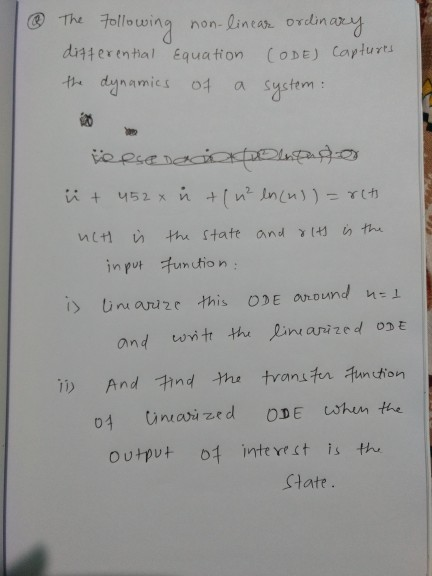 @ The following non-linear ordinary
differential Equation (ODE) Captures
the dynamics of a system:
ü + 452 x u̇ + (u² ln(u)) = r(t)
u(t) is the state and r(t) is the
input function:
i) linearize this ODE around u=1
and write the linearized ODE
ii) And find the transfer function
of linearized ODE when the
output of interest is the
state.